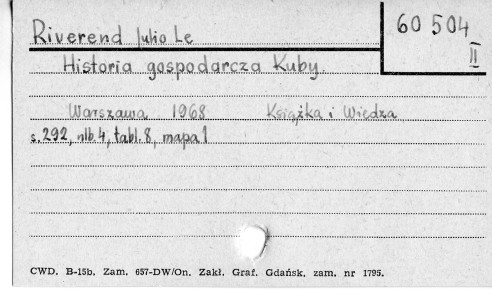 Riverend Julio Le
60 504
II
Historia gospodarcza Kuby.
Warszawa 1968 Książka i Wiedza
s. 292, nlb. 4, tabl. 8, mapa 1
CWD. B-15b. Zam. 657-DW/On. Zakł. Graf. Gdańsk, zam. nr 1795.